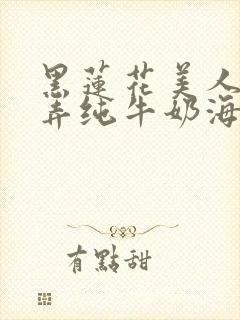 黑蓮花美人
弄纯牛奶海
有點甜